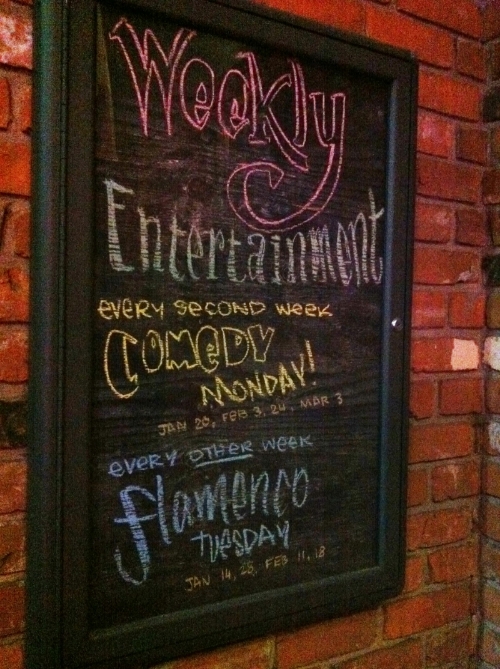 Weekly
Entertainment
EVERY SECOND WEEK
COMEDY
MONDAY!
JAN 20, FEB 3, 24, MAR 3
EVERY OTHER WEEK
flamenco
TUESDAY
JAN 14, 28, FEB 11, 18